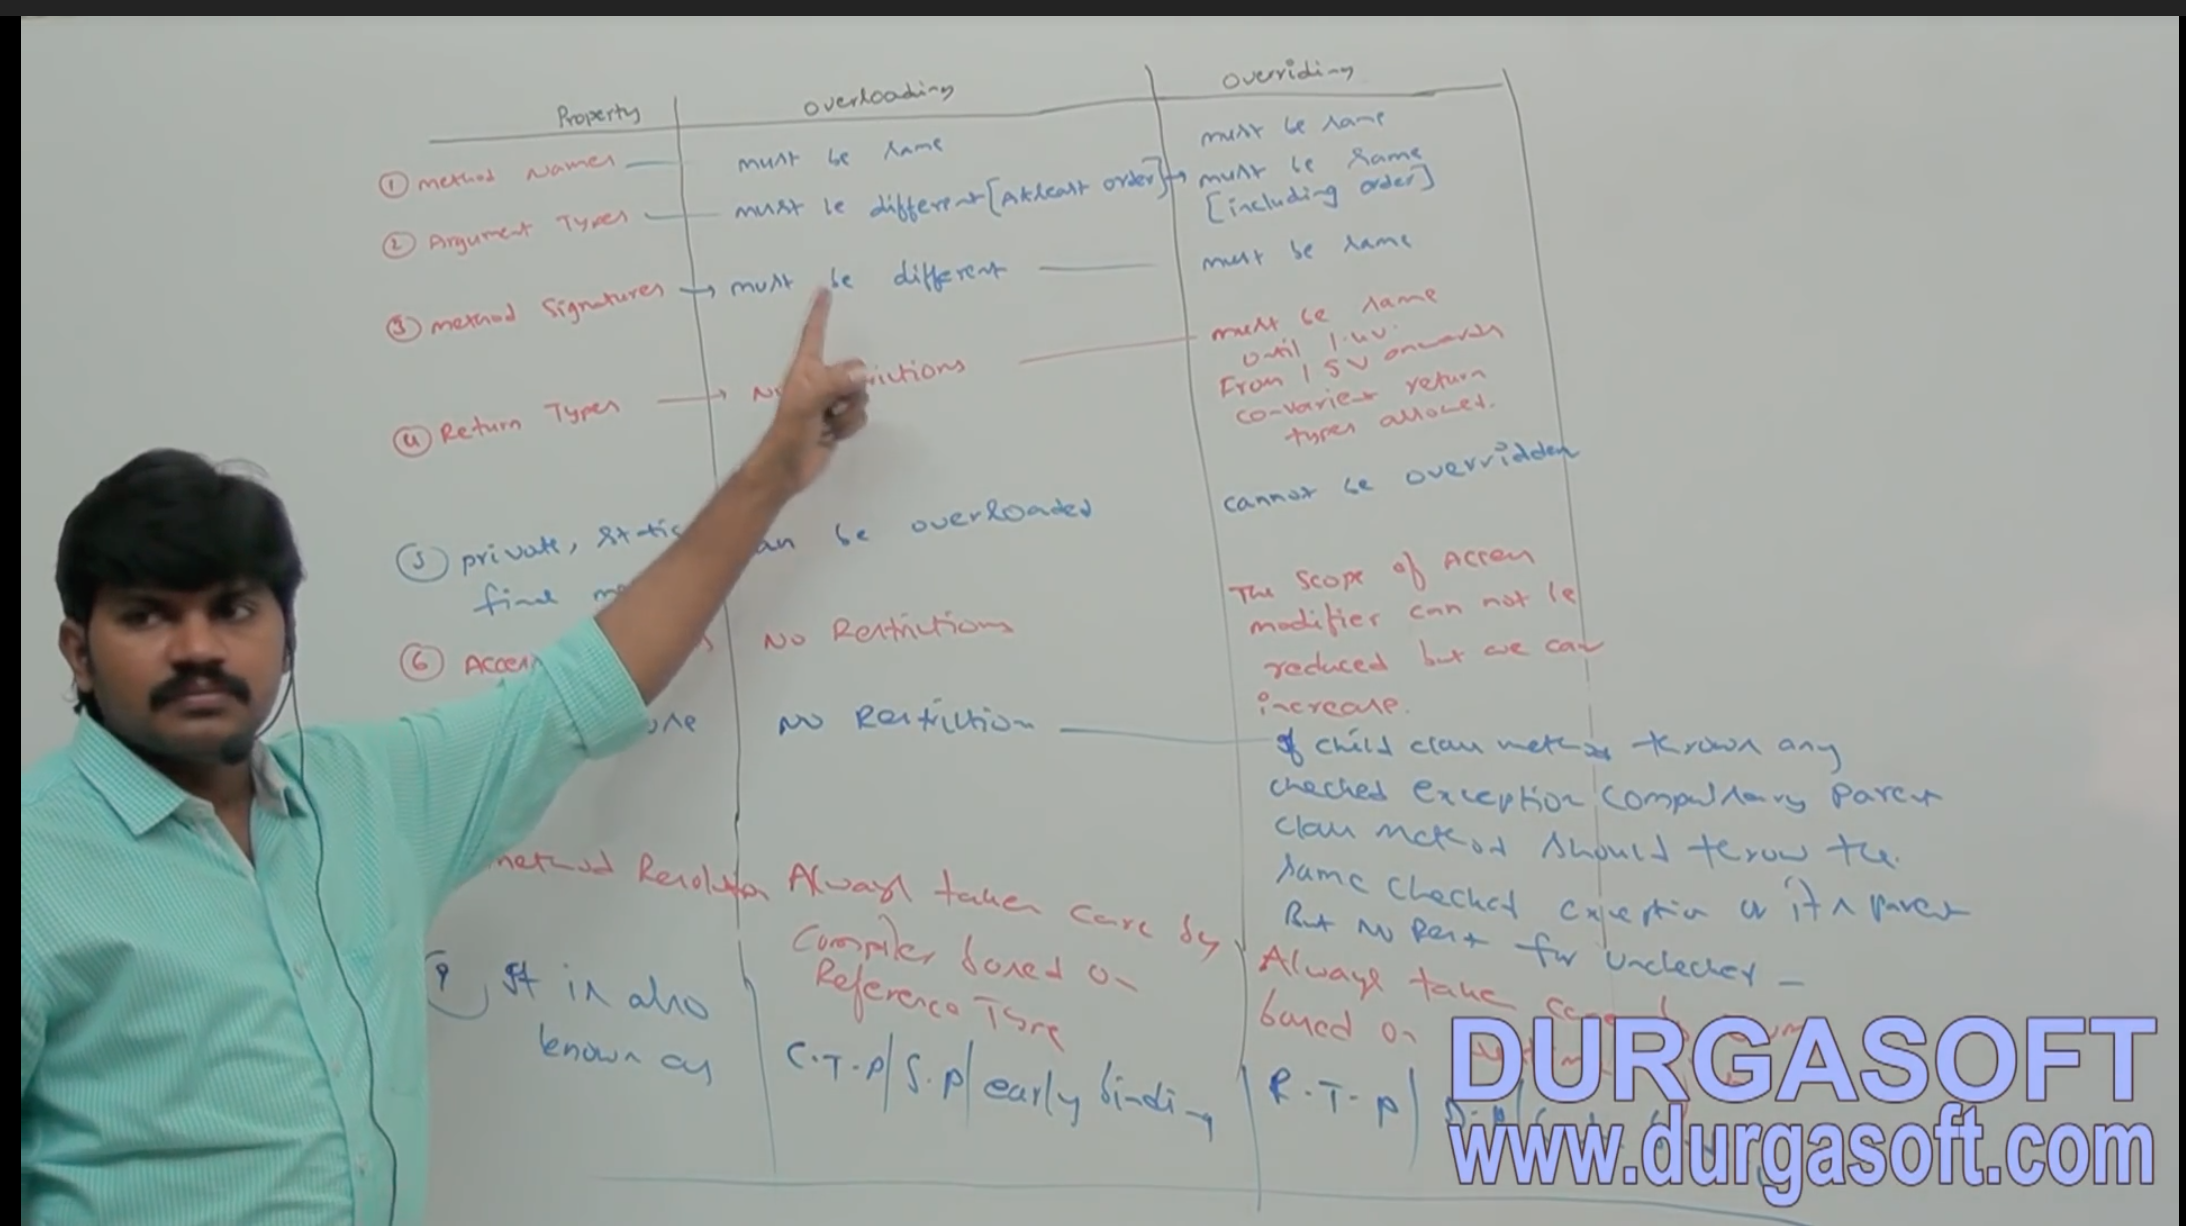 Property overloading overriding
① method Names must be same must be same
② Argument Types must be different [Atleast order] must be same
[including order]
③ method Signatures must be different must be same
④ Return Types must be same
until 1.4v
From 1.5v onwards
co-varient return
types allowed.
⑤ private, static be overloaded cannot be overridden
⑥ No Restrictions The scope of Access
modifier can not be
reduced but we can
increase.
No Restriction If child class method throws any
checked exception compulsary parent
class method should throw the
same checked exception or its parent
But no Rest for unchecked
method Resolution Always taken care by
Compiler based on
Reference Type
Always take
based on
9 It is also
known as
C.T.P/S.P/early binding R.T.P
DURGASOFT
www.durgasoft.com